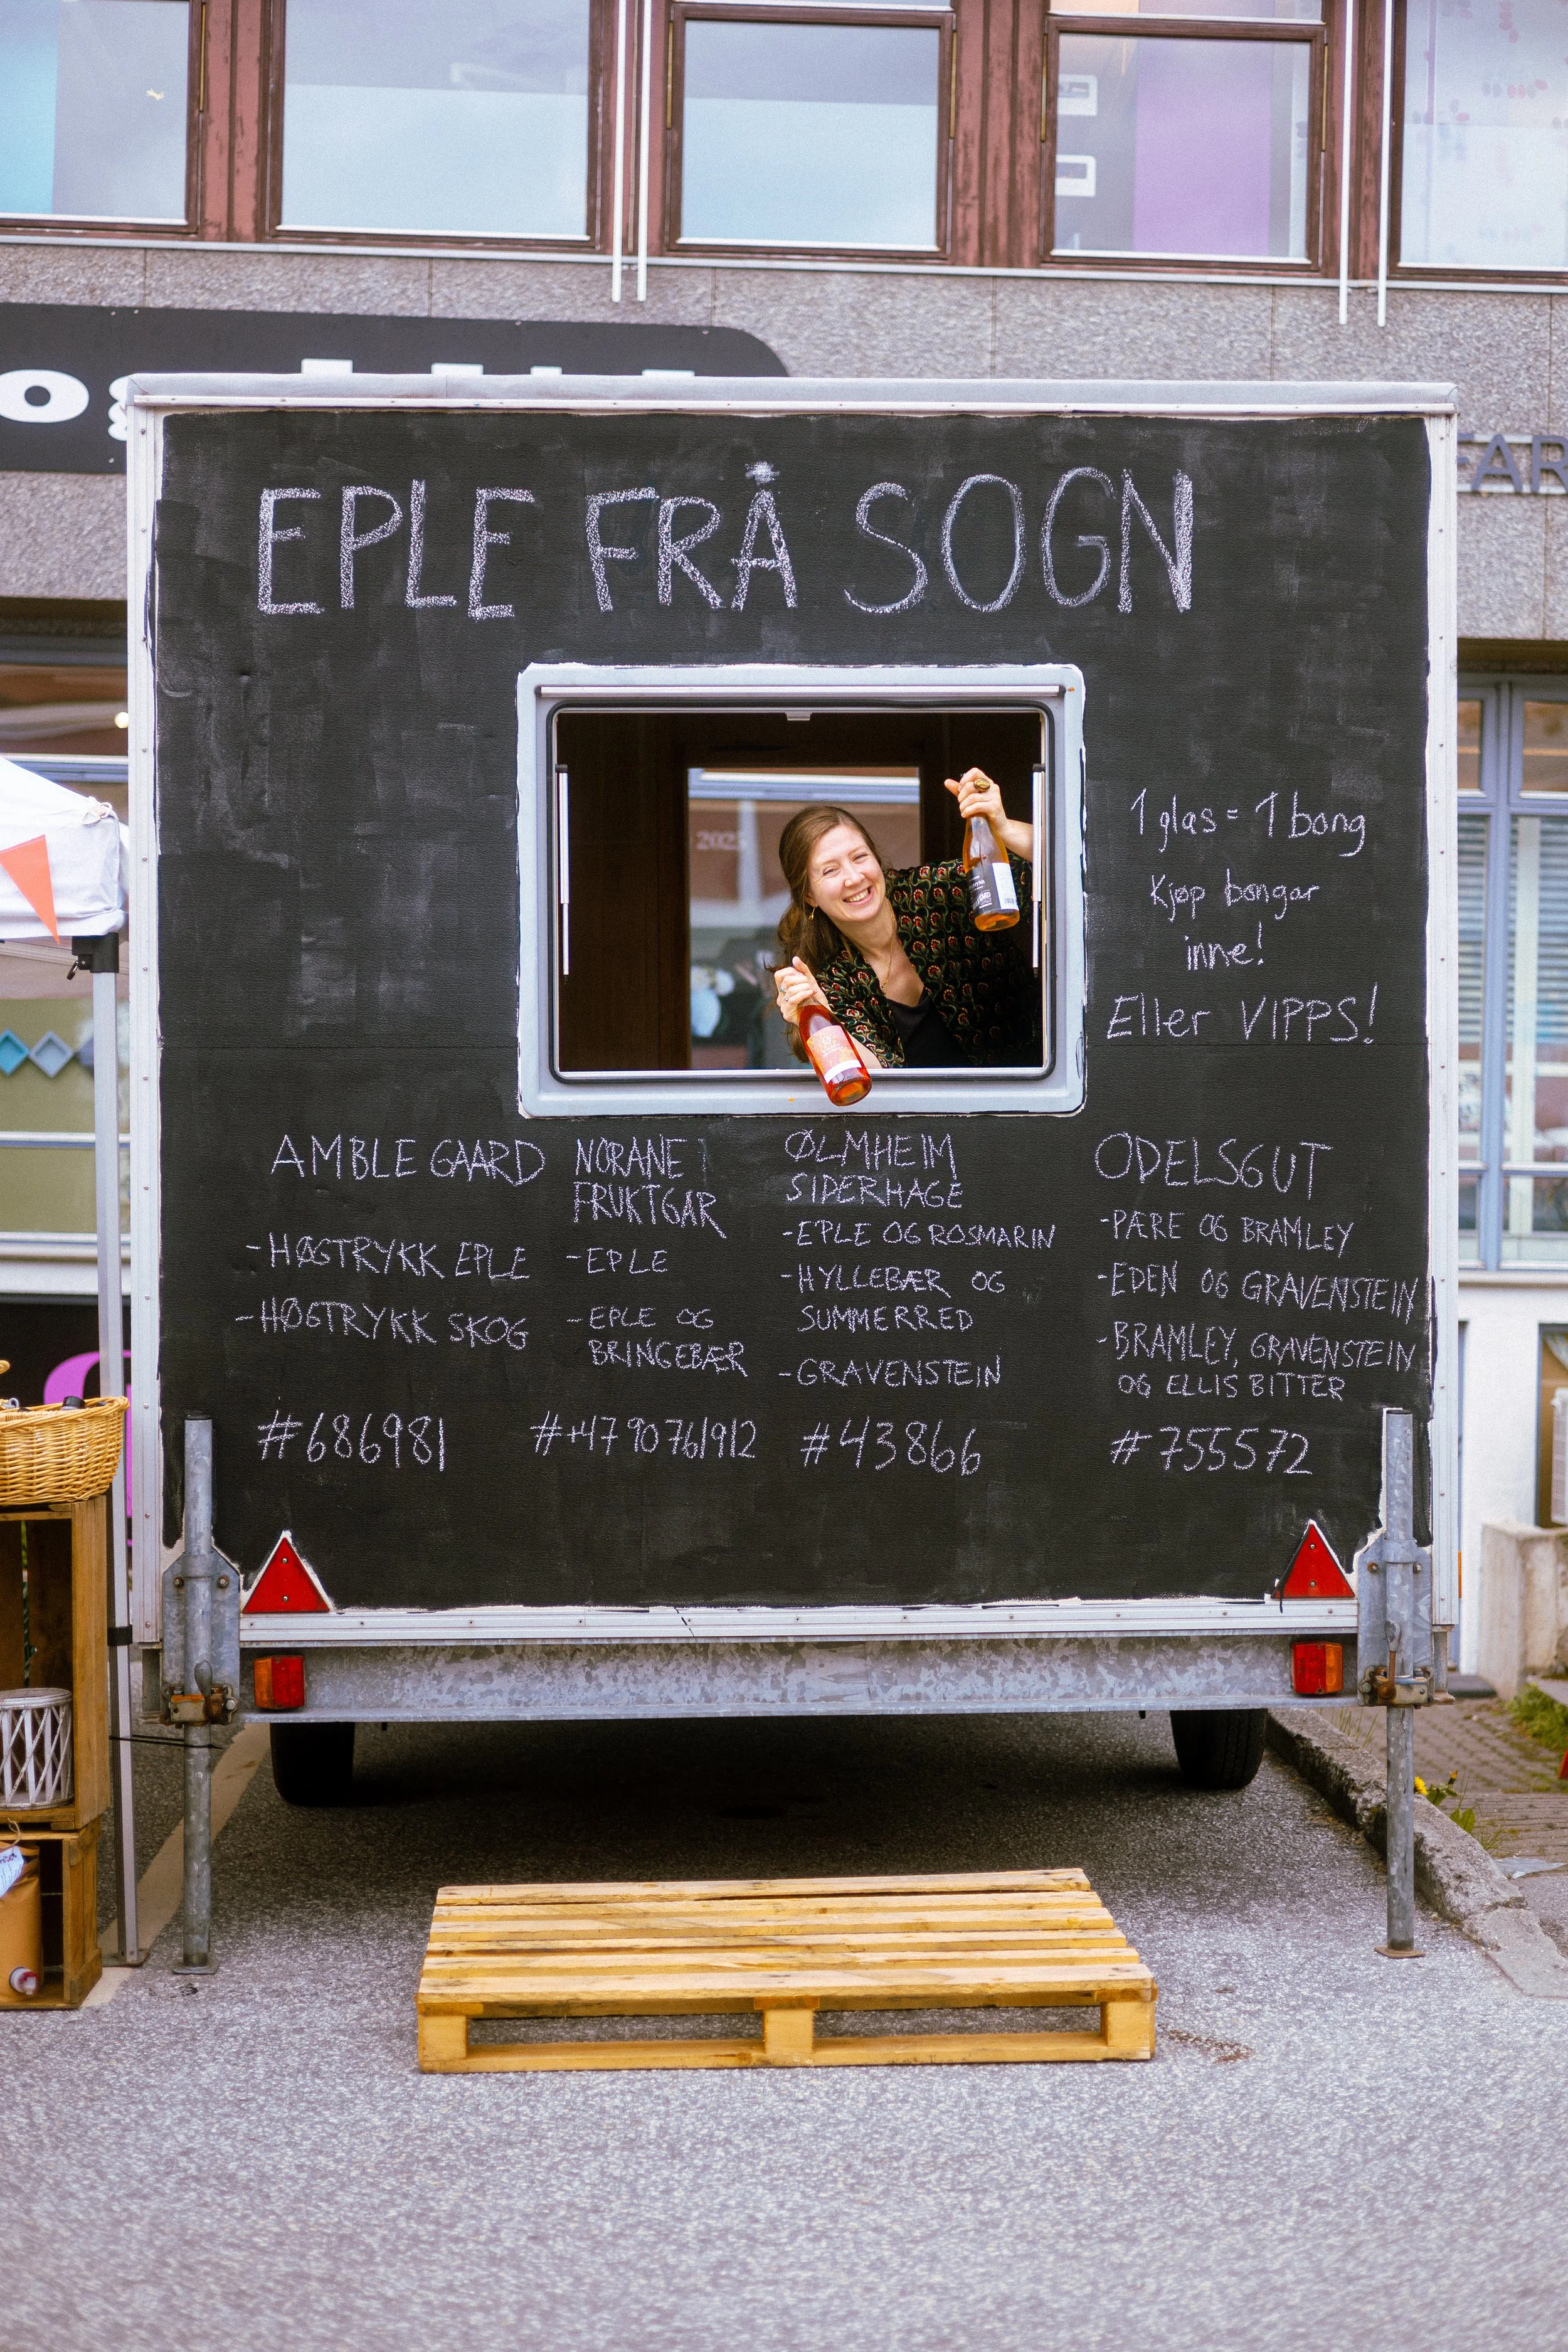 og
FAR
EPLE FRÅ SOGN
2023
1 glas = 1 bong
Kjøp bongar
inne!
Eller VIPPS!
AMBLE GAARD
-HØGTRYKK EPLE
-HØGTRYKK SKOG
#686981
NORANE
FRUKTGAR
-EPLE
-EPLE OG
BRINGEBÆR
#+47 90 76 1912
ØLMHEIM
SIDERHAGE
-EPLE OG ROSMARIN
-HYLLEBÆR OG
SUMMERRED
-GRAVENSTEIN
#43866
ODELSGUT
-PÆRE OG BRAMLEY
-EDEN OG GRAVENSTEIN
-BRAMLEY, GRAVENSTEIN
OG ELLIS BITTER
#755572